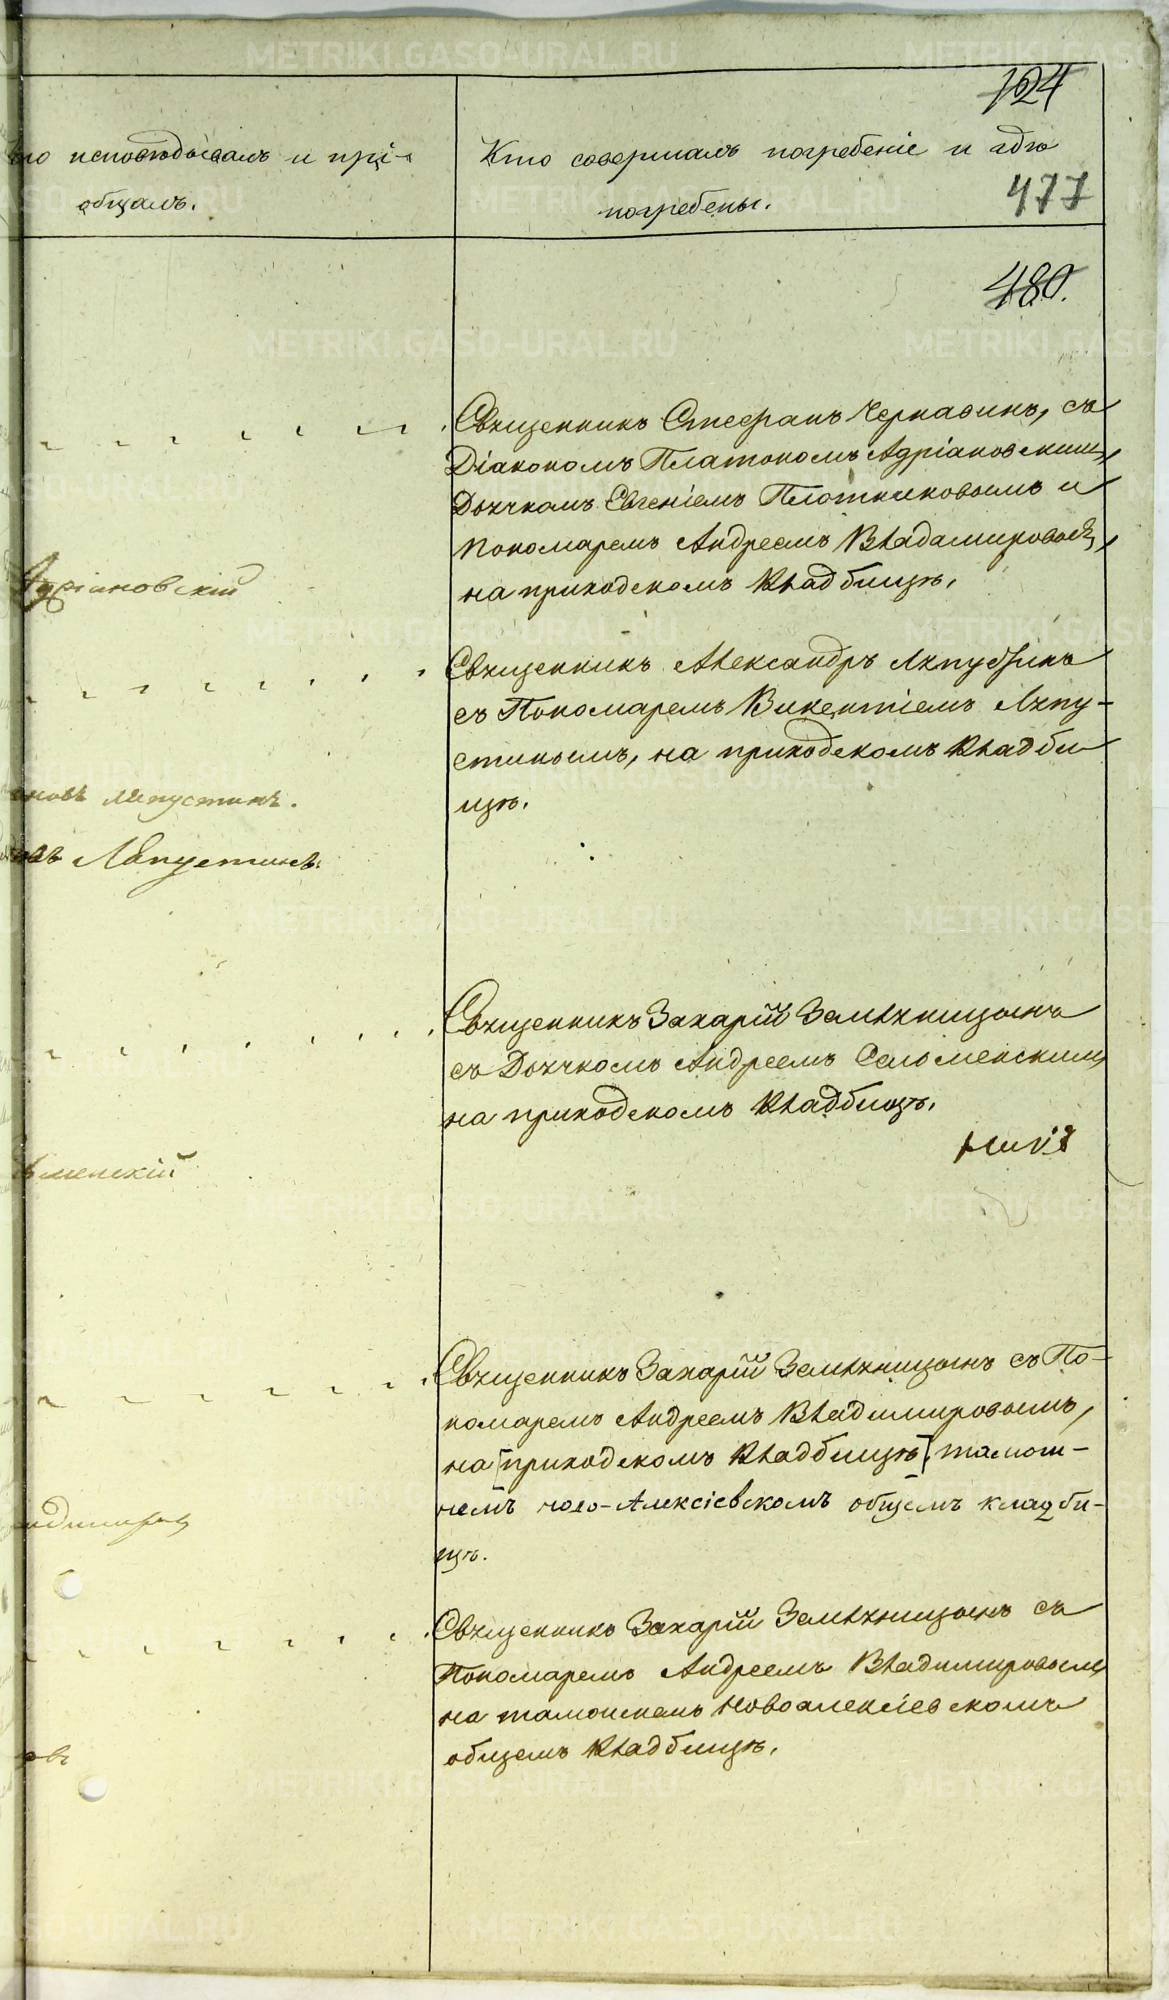 124
то исповѣдывалъ и прі-
общалъ.
Кто совершалъ погребеніе и гдѣ
погребены.
477
480.
Священникъ Стефанъ Чернавинъ, съ
Діакономъ Платономъ Адріановскимъ,
Дьячкомъ Евгеніемъ Плотниковымъ и
Пономаремъ Андреемъ Владимировымъ,
на приходскомъ кладбищѣ.
Адріановскій
Священникъ Александръ Ляпустинъ
съ Пономаремъ Викентіемъ Ляпу-
стинымъ, на приходскомъ кладби
щѣ.
новъ Ляпустинъ.
Ляпустинъ.
Священникъ Захарій Земляницынъ
съ Дьячкомъ Андреемъ Селоменскимъ
на приходскомъ кладбищѣ.
менскій
Священникъ Захарій Земляницынъ съ По-
номаремъ Андреемъ Владимировымъ,
на [приходскомъ кладбищѣ] тамош-
немъ ново-Алексіевскомъ общемъ кладби-
щѣ.
Священникъ Захарій Земляницынъ съ
Пономаремъ Андреемъ Владимировымъ
на тамошнемъ новоалексіевскомъ
общемъ кладбищѣ.
евъ
METRIKI.GASO-URAL.RU